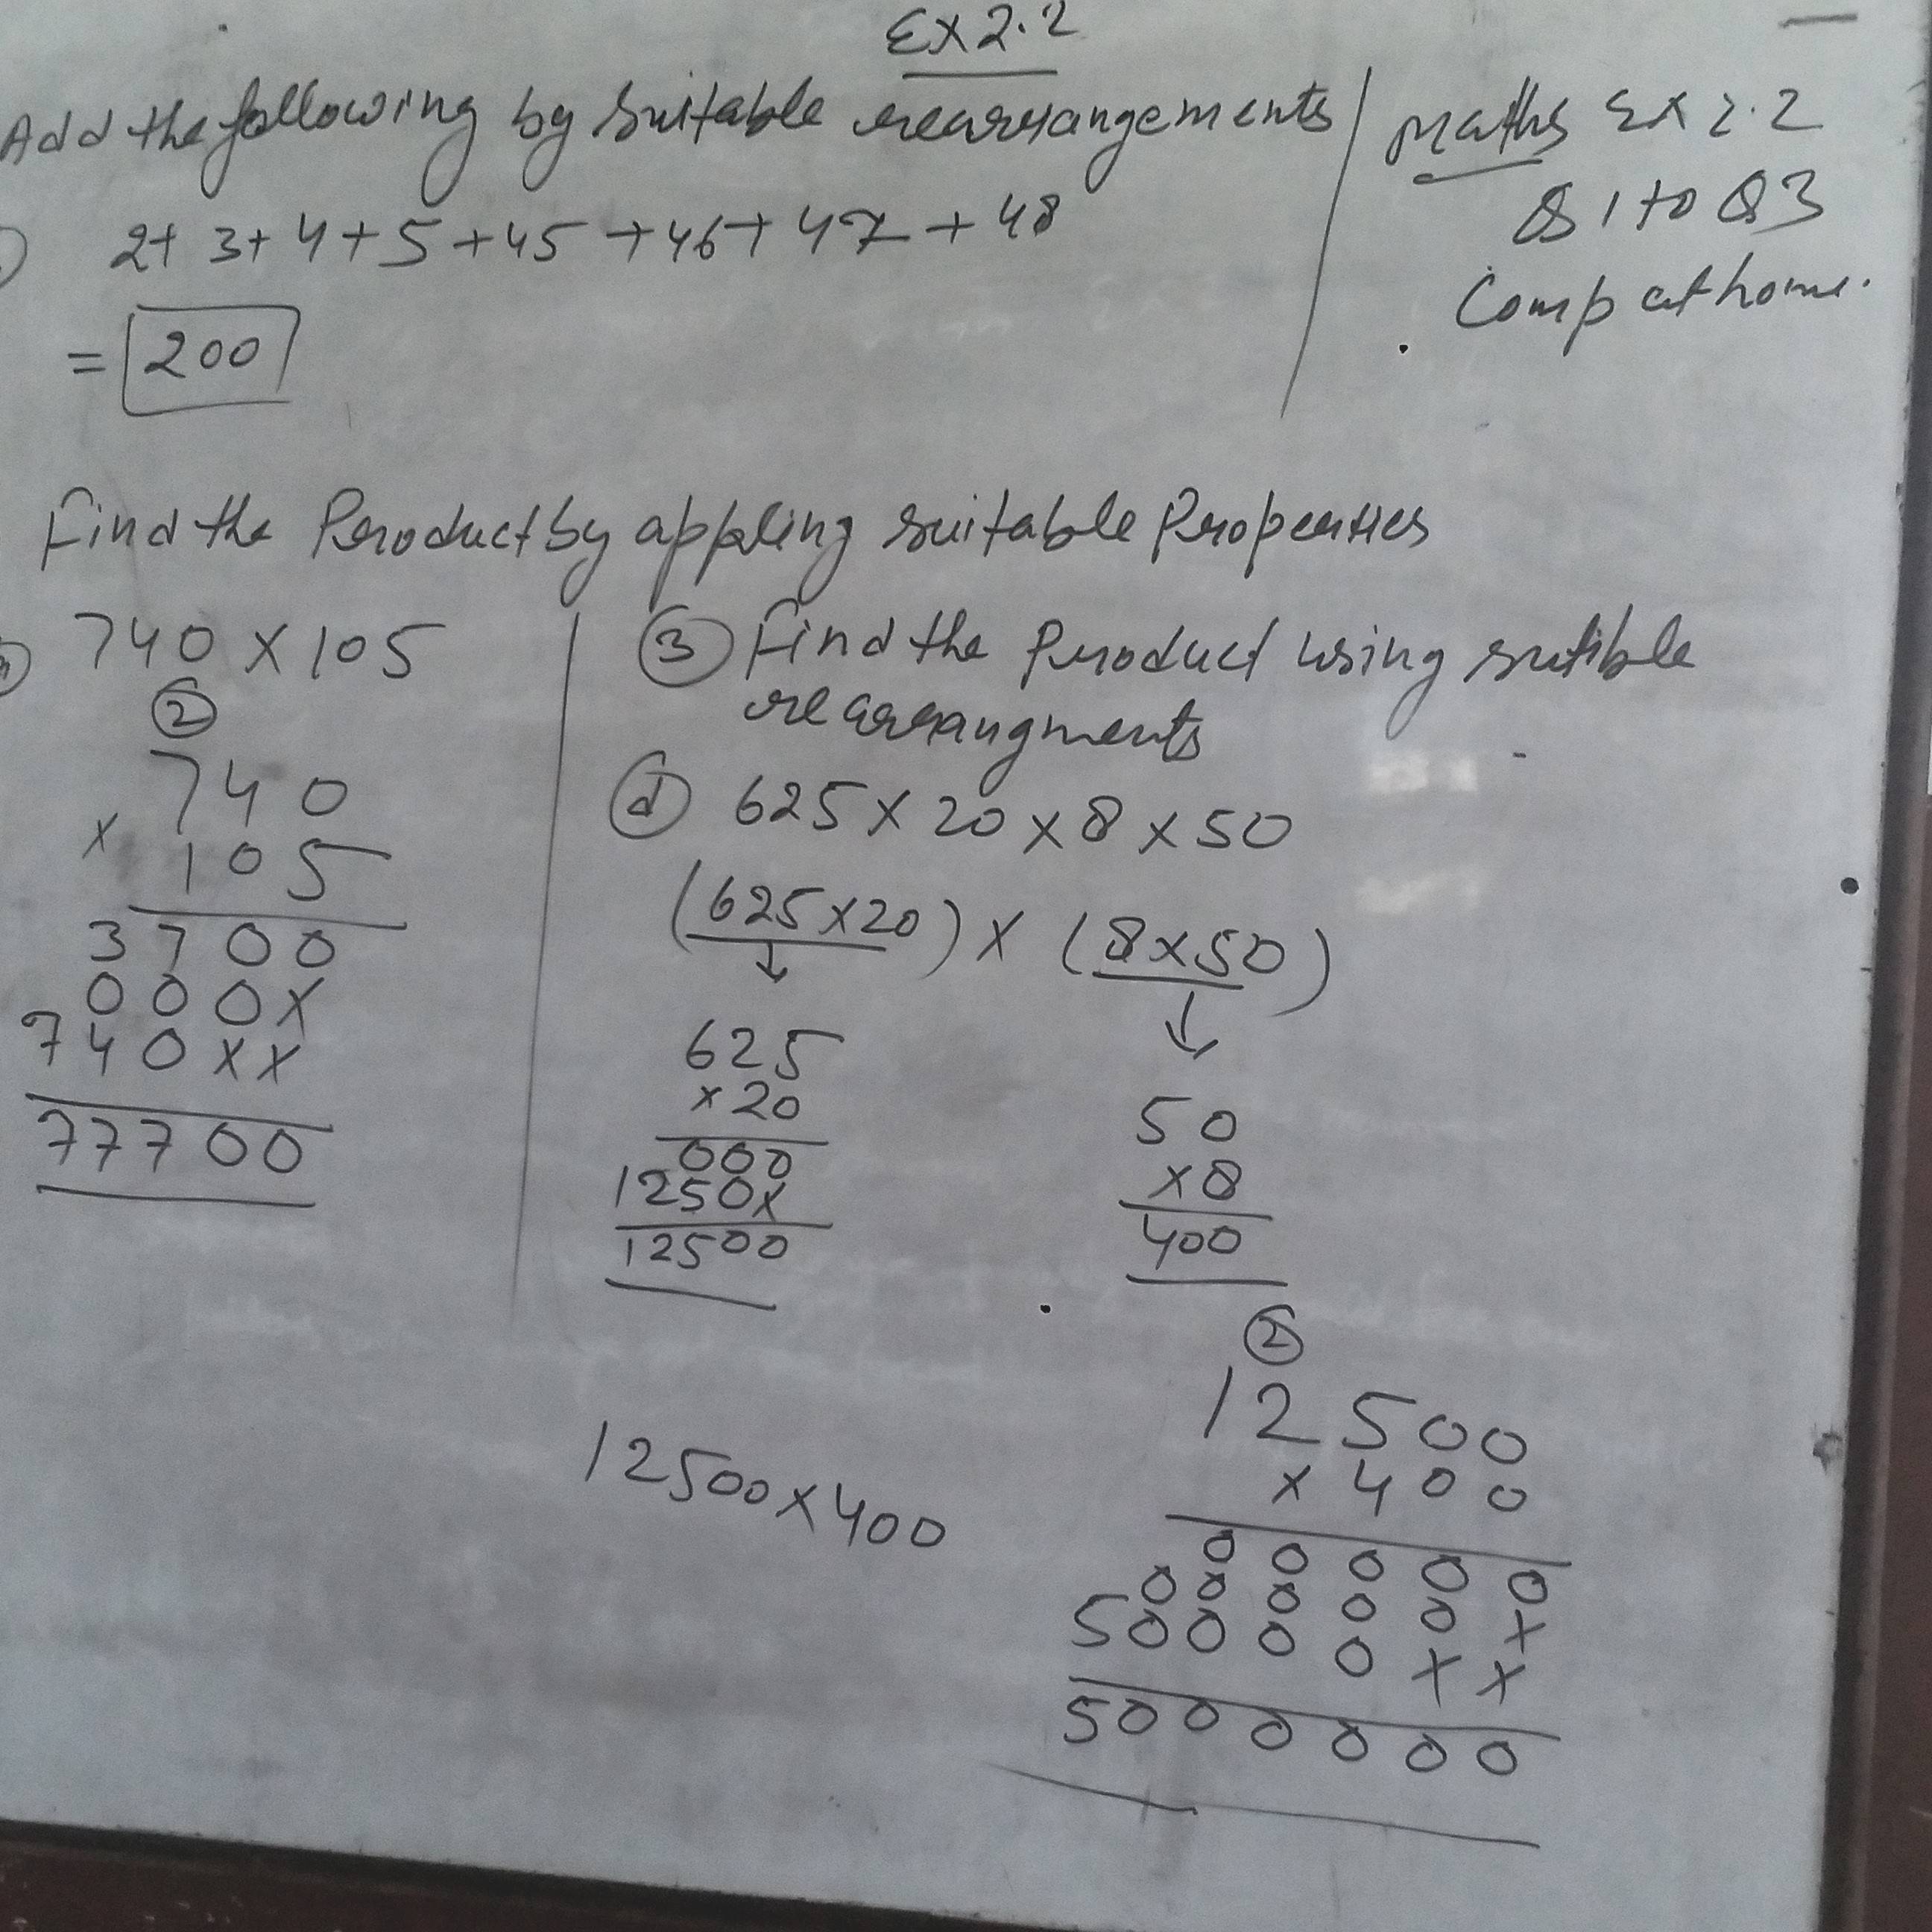 Ex 2.2
Add the following by suitable rearrangements
2+ 3+ 4+5+45 +46+ 47 + 48
= 200
Maths Ex 2.2
Q1 to Q3
Comp at home.
Find the Product by appling suitable Properties
740 x 105
②
740
x 105
3700
000x
740xx
77700
③ Find the Product using sutible
rearrangments
ⓓ 625 x 20 x 8 x 50
(625 x 20) x (8 x 50)
↓
625
x 20
000
1250x
12500
↓
50
x8
400
12500 x 400
②
12500
x 400
00000
00000x
50000xx
5000000